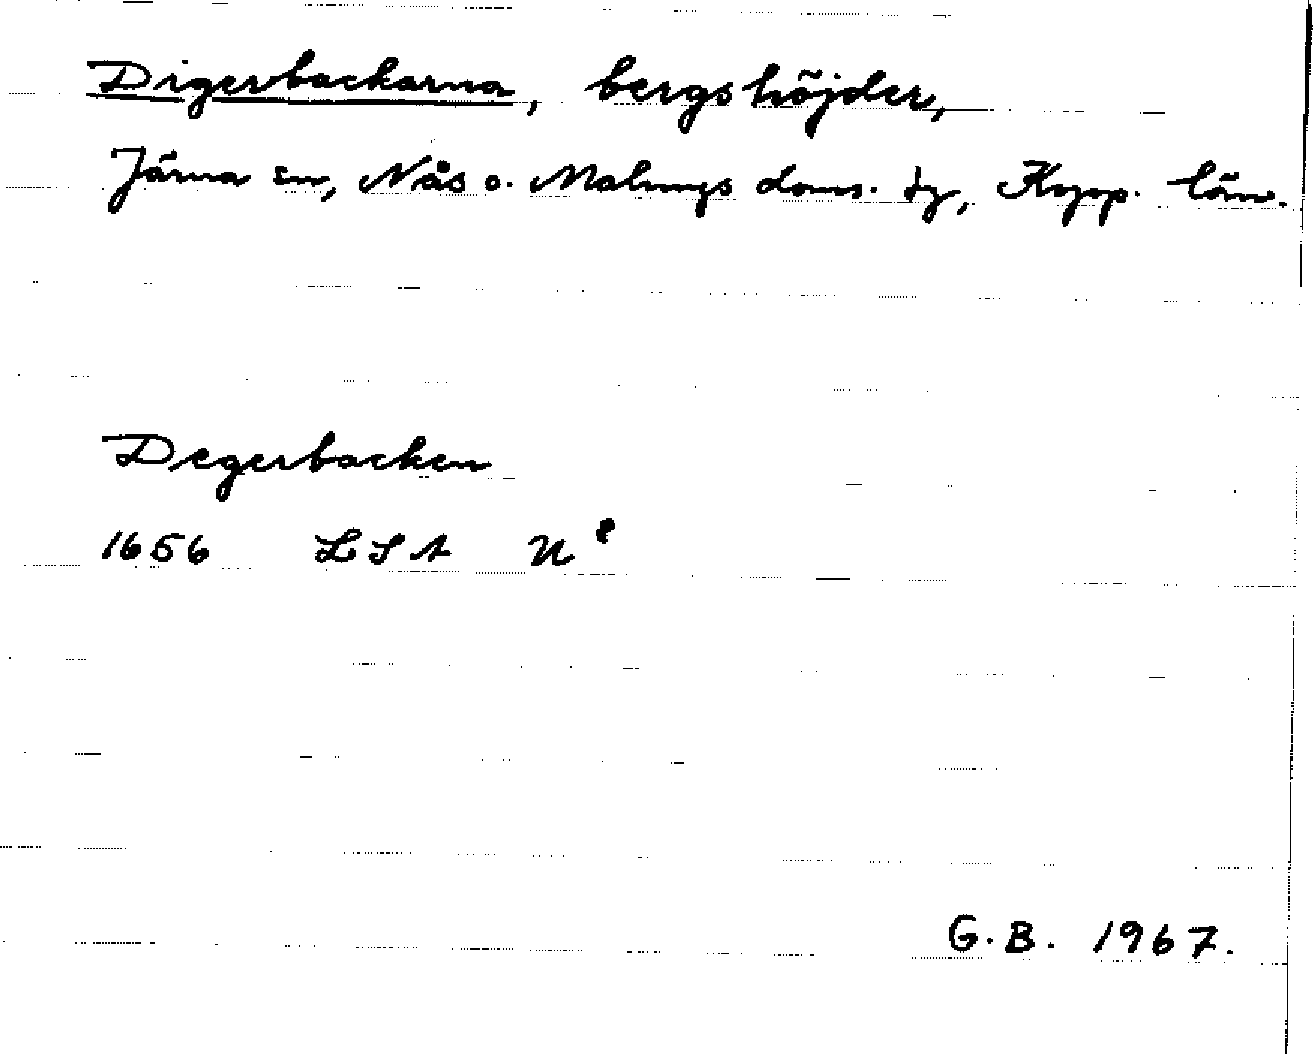 Digerbackarna, bergshöjder,
Järna sn, Nås o. Malungs doms. tg, Kopp. län.
Degerbacken
1656 LSA U⁸
G.B. 1967.